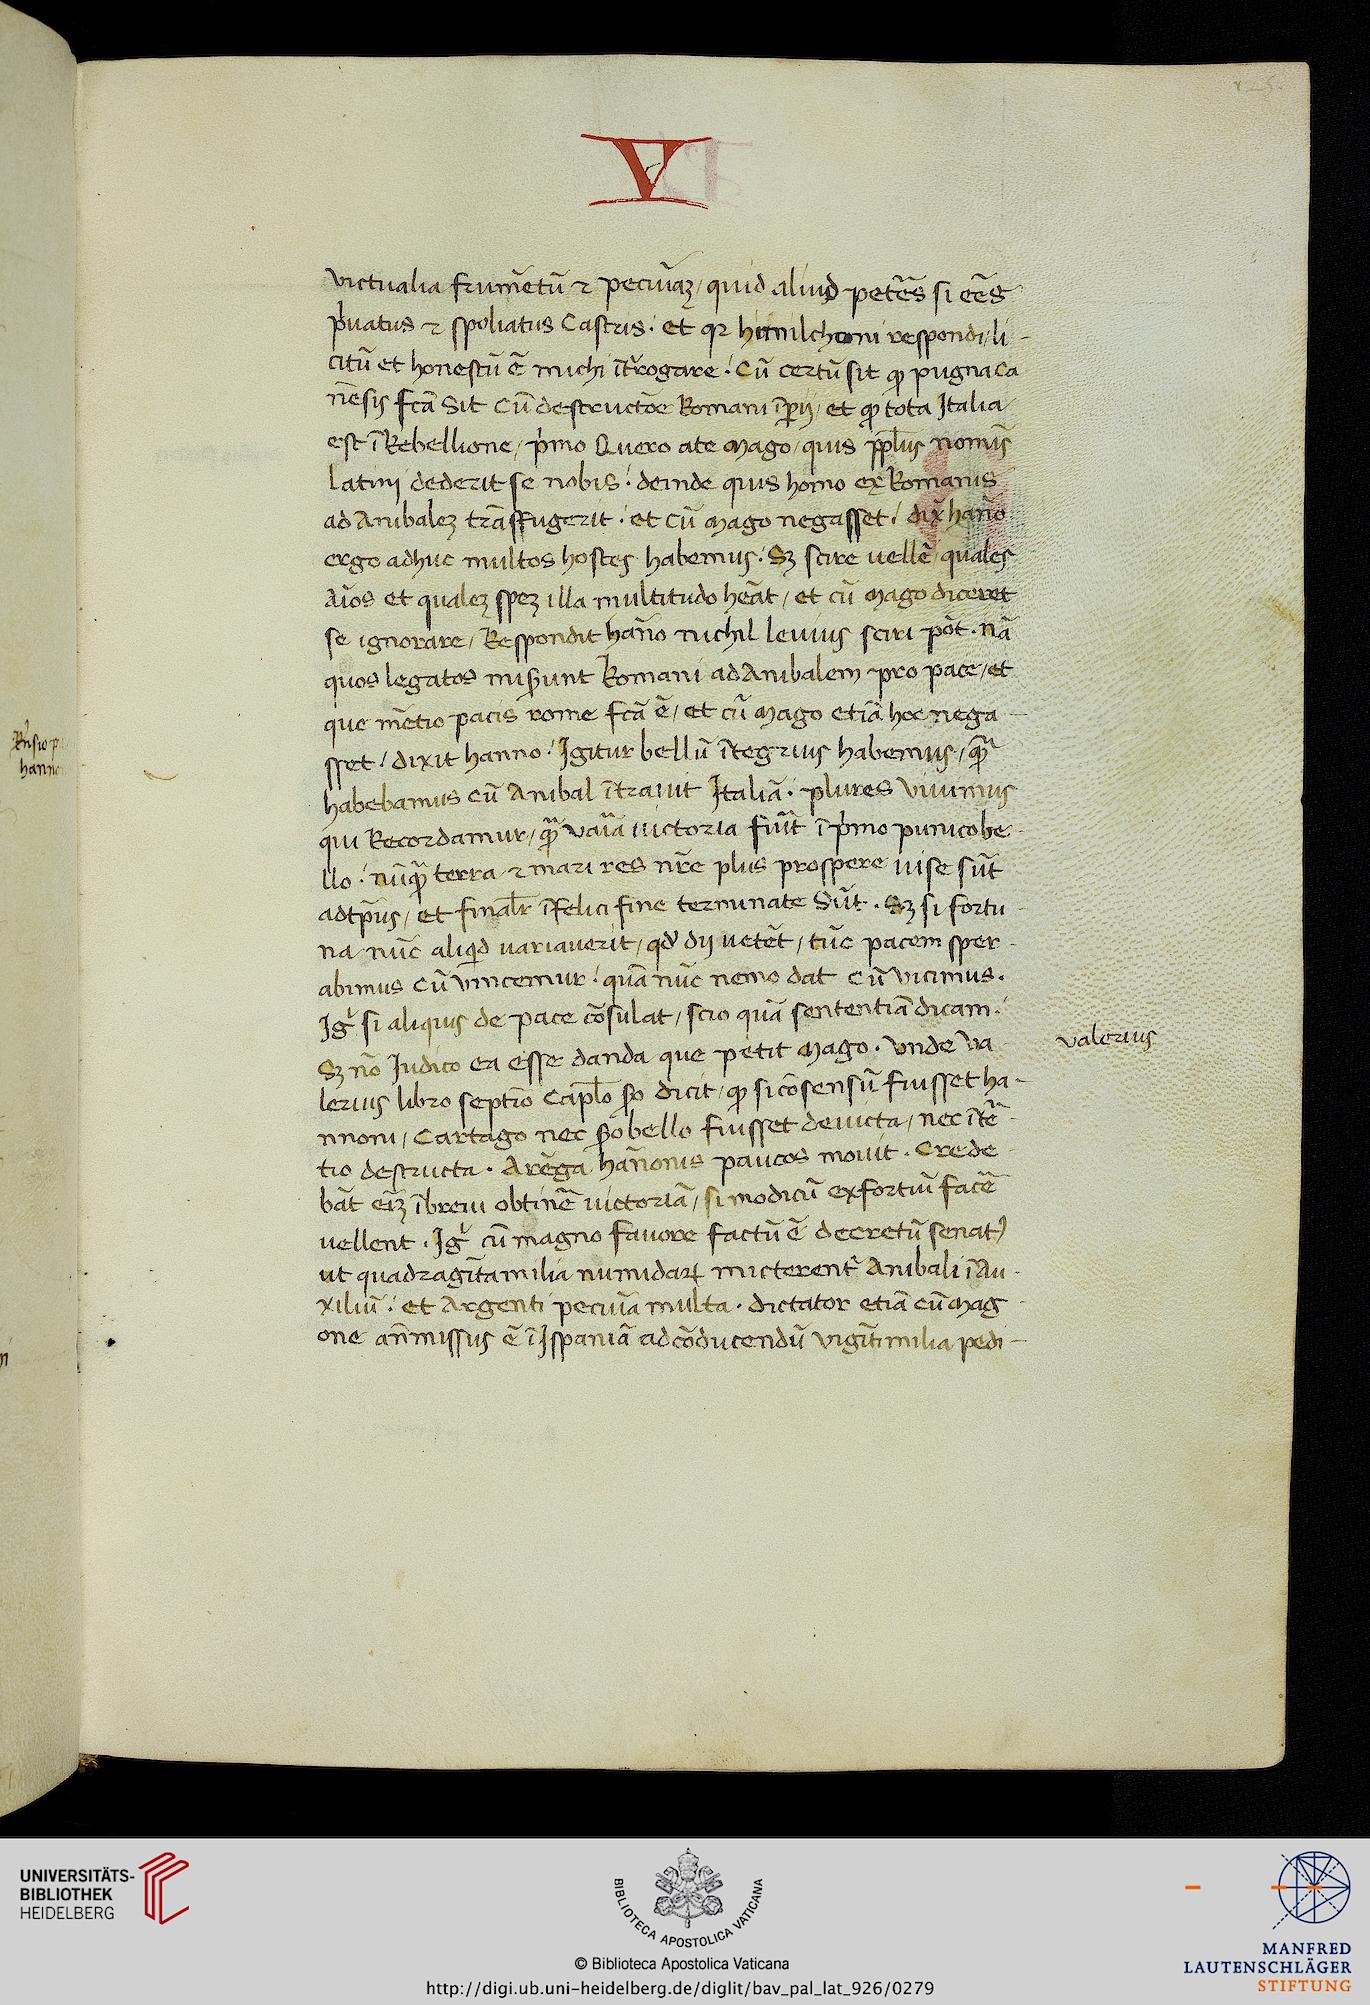 V
victualia frumētū ⁊ pecuniaȝ / quid aliud petēs si eēs
pͥvatus ⁊ spoliatus Castris · et qꝛ himilchoni respondi / li-
citū et honestū ē michi īt̄rogare · Cū certū sit ꝙ pugna Ca
nēsis fcā Sit Cū destructōe Romani īpȳ / et ꝙ tota Italia
est ī Rebellione / pͥmo Quero a te Mago / quis pp̄lus nomīs
latinj dederit se nobis · deinde quis homo ex Romanis
ad Anibaleȝ trāsffugerit · et cū Mago negasset / dix̄ hāno
ergo adhuc multos hostes habemus · Sȝ scire uellē quales
Aīos et qualeȝ speȝ illa multitudo hēāt / et cū Mago diceret
se ignorare / Respondit hāno nichil levius sciri pōt · nā
quos legatos miserunt Romani ad Anibalem pro pace / et
que mētio pacis rome fcā ē / et cū Mago etiā hoc nega-
sset / dixit hanno · Igitur bellū ītegrius habemus / qꝫā
habebamus cū Anibal ītravit Italiā · plures vivimus
qui Recordamur / qꝫā vaīa victoria fūīt ī pͥmo punico be-
llo · nūqꝫā terra ⁊ mari res nr̄e plus prospere vise sūt
ad tp̄us / et finalr̄ īfelici fine terminate Sūt · Sȝ si fortu-
na nūc aliqͥd variaverit / qd̄ dij vetēt / tūc pacem sper-
abimus Cū vincemur · quā nūc nemo dat Cū vicimus ·
Igͥ si aliquis de pace cōsulat / scio quā sententiā dicam ·
Sȝ nō Judico ea esse danda que petit Mago · Unde Va
lerius libro septīo Capl̄o sᵒo dicit / ꝙ si cōsensū fuisset ha-
nnoni / Cartago nec sᵒo bello fuisset devicta / nec ītē
tio destructa · Arēga hānonis paucos movit · Crede-
bāt eīȝ ī brevi obtinē victoriā / si modicū exfortiū facē
vellent · Igͥ cū magno favore factū ē decretū senatꝰ
ut quadragīta milia numidaꝝ micterentͬ Anibali ī Au-
xiliū · et Argenti pecunia multa · dictator etiā cū Mag-
one an̄missus ē ī Ispaniā ad cōducendū vigīti milia pedi-
valerius
hanno
UNIVERSITÄTS-
BIBLIOTHEK
HEIDELBERG
BIBLIOTECA APOSTOLICA VATICANA
© Biblioteca Apostolica Vaticana
http://digi.ub.uni-heidelberg.de/diglit/bav_pal_lat_926/0279
MANFRED
LAUTENSCHLÄGER
STIFTUNG